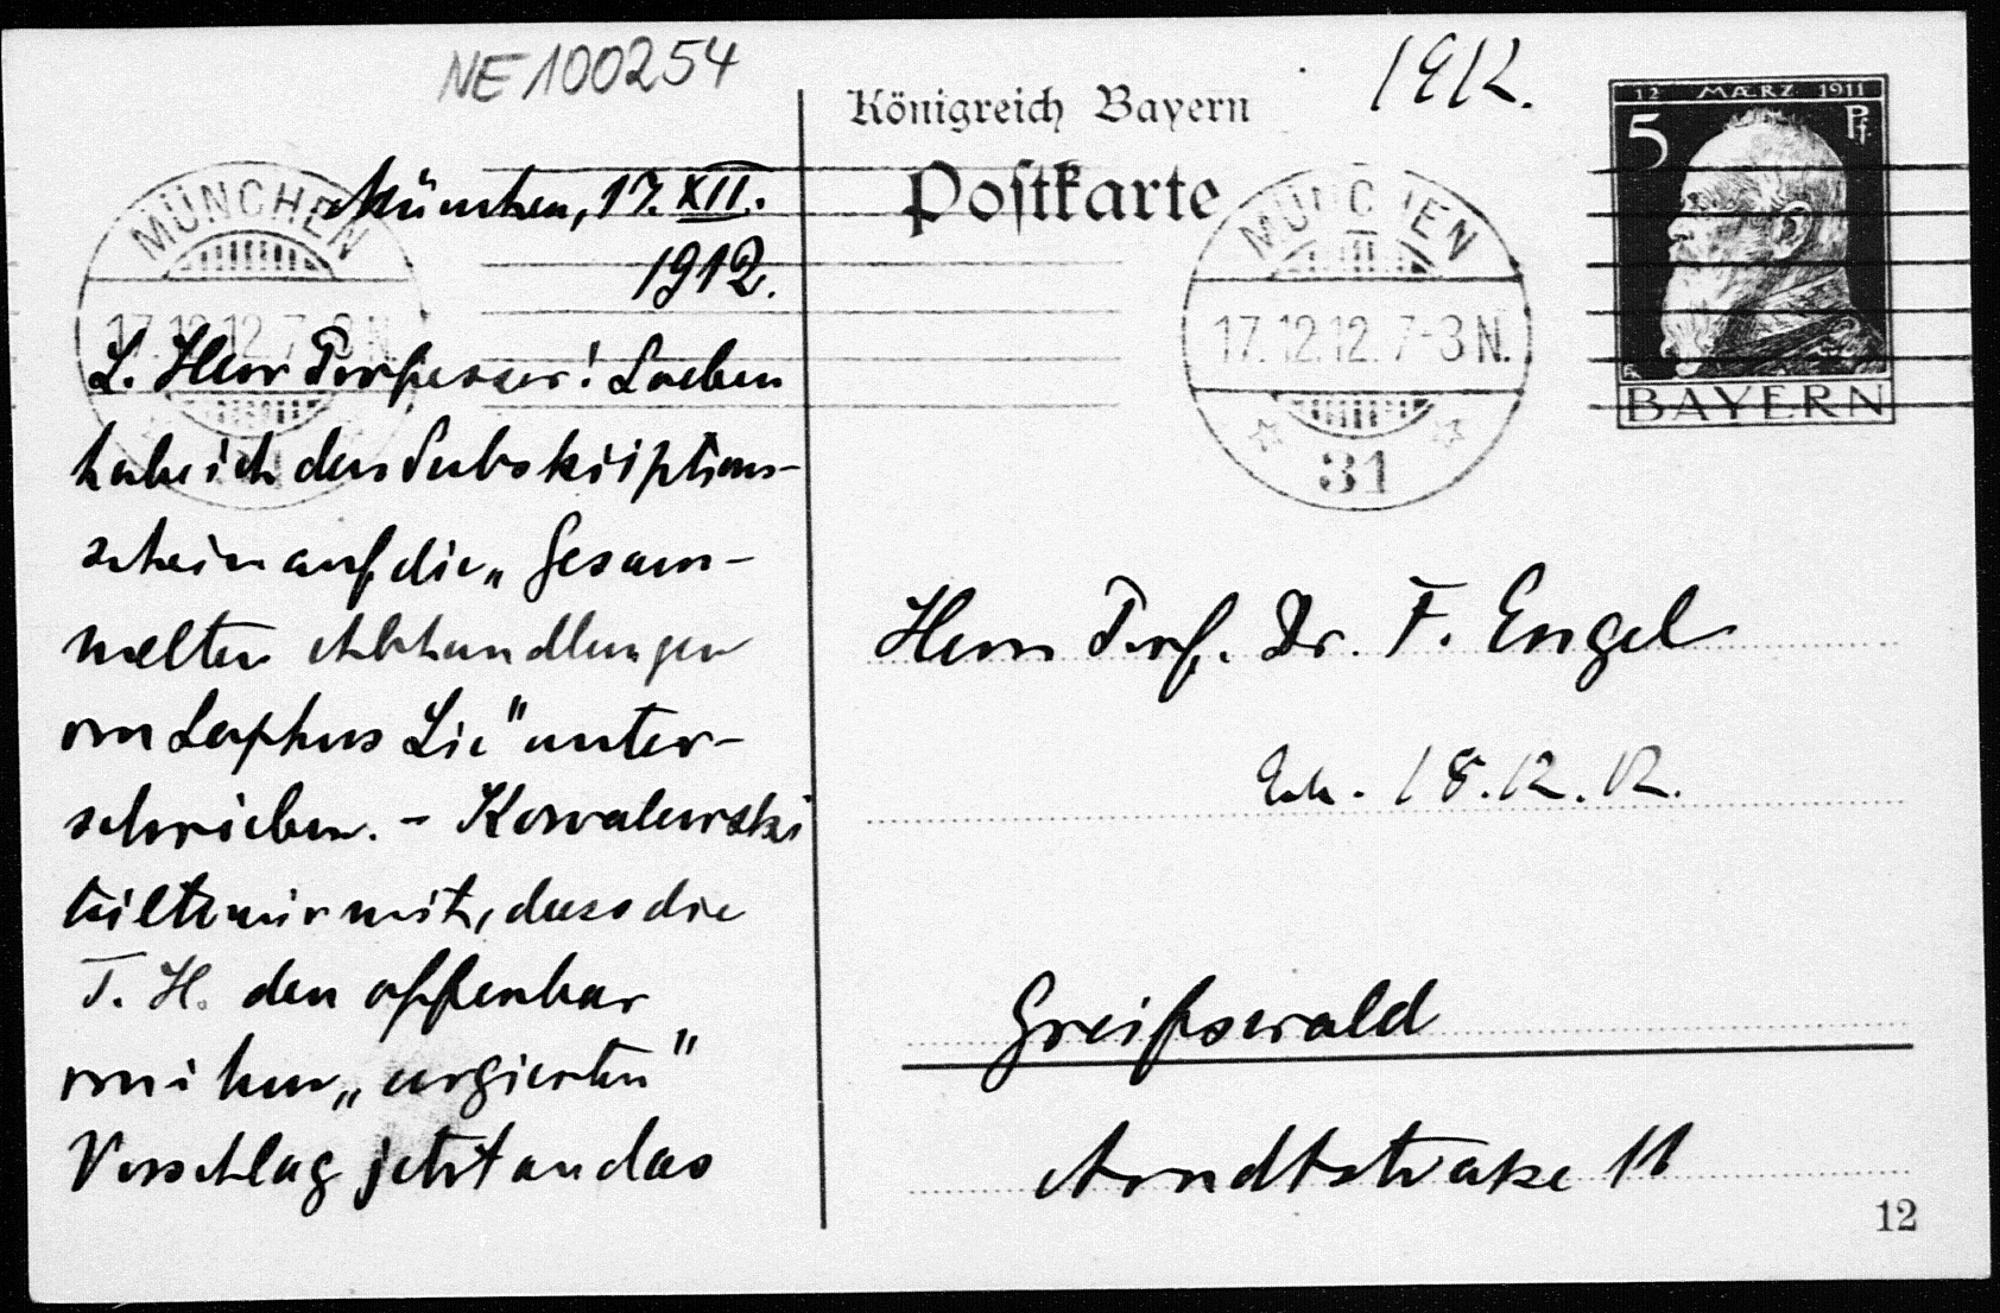 NE 100254
1912.
Königreich Bayern
Postkarte
12 MÆRZ 1911
5 Pf.
BAYERN
MÜNCHEN
17.12.12. 7-8 N.
MÜNCHEN
17.12.12. 7-8 N.
31
München, 17. XII.
1912.
L. Herr Professor! Soeben
habe ich den Subskriptions-
schein auf die „Gesam-
melten Abhandlungen
von Sophus Lie" unter-
schrieben. - Kowalewski
teilte mir mit, dass die
T. H. den offenbar
von ihm „urgierten"
Vorschlag jetzt an das
Herrn Prof. Dr. F. Engel
18.12.12.
Greifswald
Arndtstraße 11
12